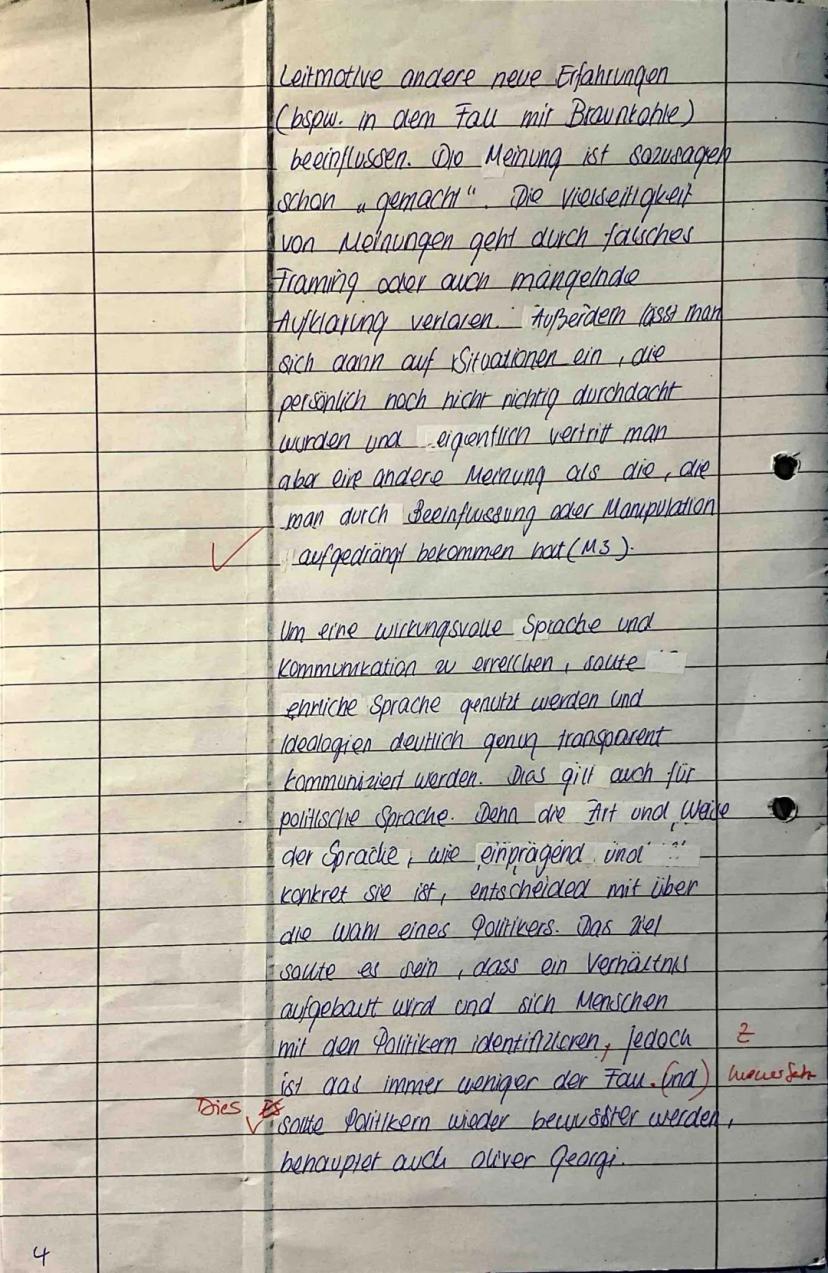 Leitmotive andere neue Erfahrungen
(bspw. in dem Fall mit Braunkohle)
beeinflussen. Die Meinung ist sozusagen
schon „gemacht“. Die Vielseitigkeit
von Meinungen geht durch falsches
Framing oder auch mangelnde
Aufklärung verloren. Außerdem lässt man
sich dann auf Situationen ein, die
persönlich noch nicht richtig durchdacht
wurden und eigentlich vertritt man
aber eine andere Meinung als die, die
man durch Beeinflussung oder Manipulation
aufgedrängt bekommen hat (M3).
Um eine wirkungsvolle Sprache und
Kommunikation zu erreichen, sollte
ehrliche Sprache genutzt werden und
Ideologien deutlich genug transparent
kommuniziert werden. Dies gilt auch für
politische Sprache. Denn die Art und Weise
der Sprache, wie einprägend und
konkret sie ist, entscheided mit über
die Wahl eines Politikers. Das Ziel
sollte es sein, dass ein Verhältnis
aufgebaut wird und sich Menschen
mit den Politikern identifizieren, jedoch Z
ist das immer weniger der Fall. (und) neuer Satz
Dies Es sollte Politikern wieder bewusster werden,
behauptet auch Oliver Georgi.
4